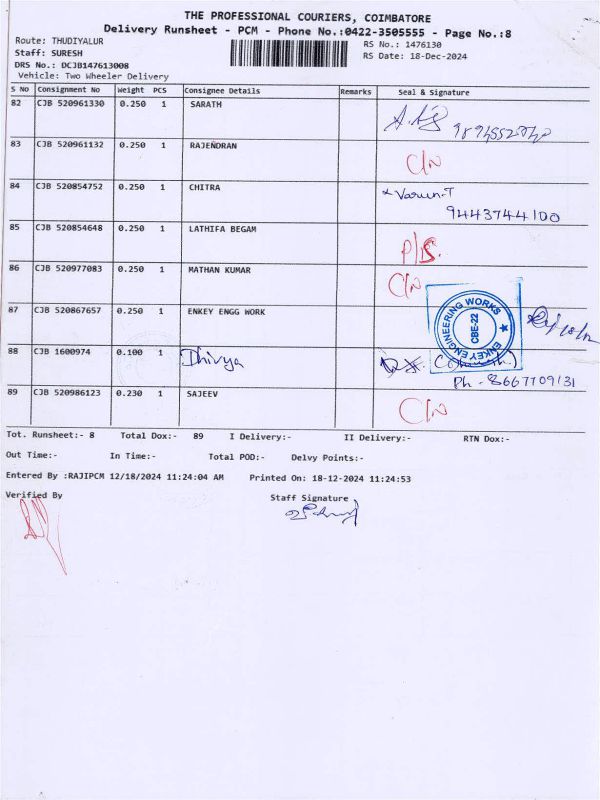 THE PROFESSIONAL COURIERS, COIMBATORE
Delivery Runsheet - PCM - Phone No.:0422-3505555 - Page No.:8
Route: THUDIYALUR
RS No.: 1476130
Staff: SURESH
RS Date: 18-Dec-2024
DRS No.: DCJB147613008
Vehicle: Two Wheeler Delivery
S No Consignment No Weight PCS Consignee Details Remarks Seal & Signature
82 CJB 520961330 0.250 1 SARATH
83 CJB 520961132 0.250 1 RAJENDRAN C/N
84 CJB 520854752 0.250 1 CHITRA Varun.T
9443744100
85 CJB 520854648 0.250 1 LATHIFA BEGAM P/S.
86 CJB 520977083 0.250 1 MATHAN KUMAR C/N
87 CJB 520867657 0.250 1 ENKEY ENGG WORK ENKEY ENGINEERING WORKS CBE-22
88 CJB 1600974 0.100 1 Dhivya
Ph - 8667709131
89 CJB 520986123 0.230 1 SAJEEV C/N
Tot. Runsheet:- 8 Total Dox:- 89 I Delivery:- II Delivery:- RTN Dox:-
Out Time:- In Time:- Total POD:- Delvy Points:-
Entered By :RAJIPCM 12/18/2024 11:24:04 AM Printed On: 18-12-2024 11:24:53
Verified By Staff Signature